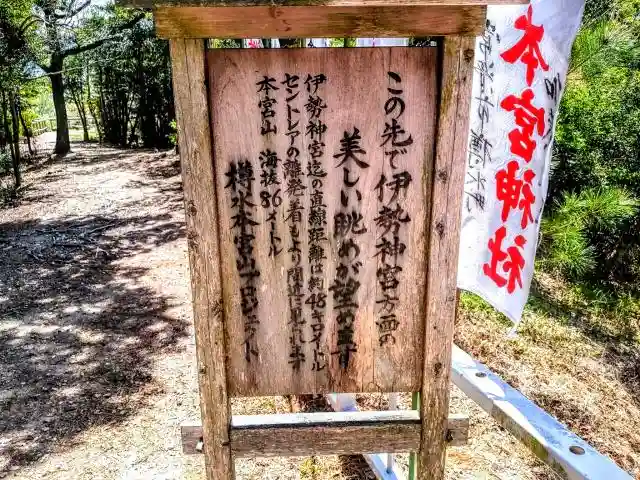 この先で伊勢神宮方面の
美しい眺めが望めます
伊勢神宮迄の直線距離は約48キロイトル
セントレアの離発着もより間近に見れます
本宮山 海抜86メートル
樽水本宮山プロジェクト
本宮神社